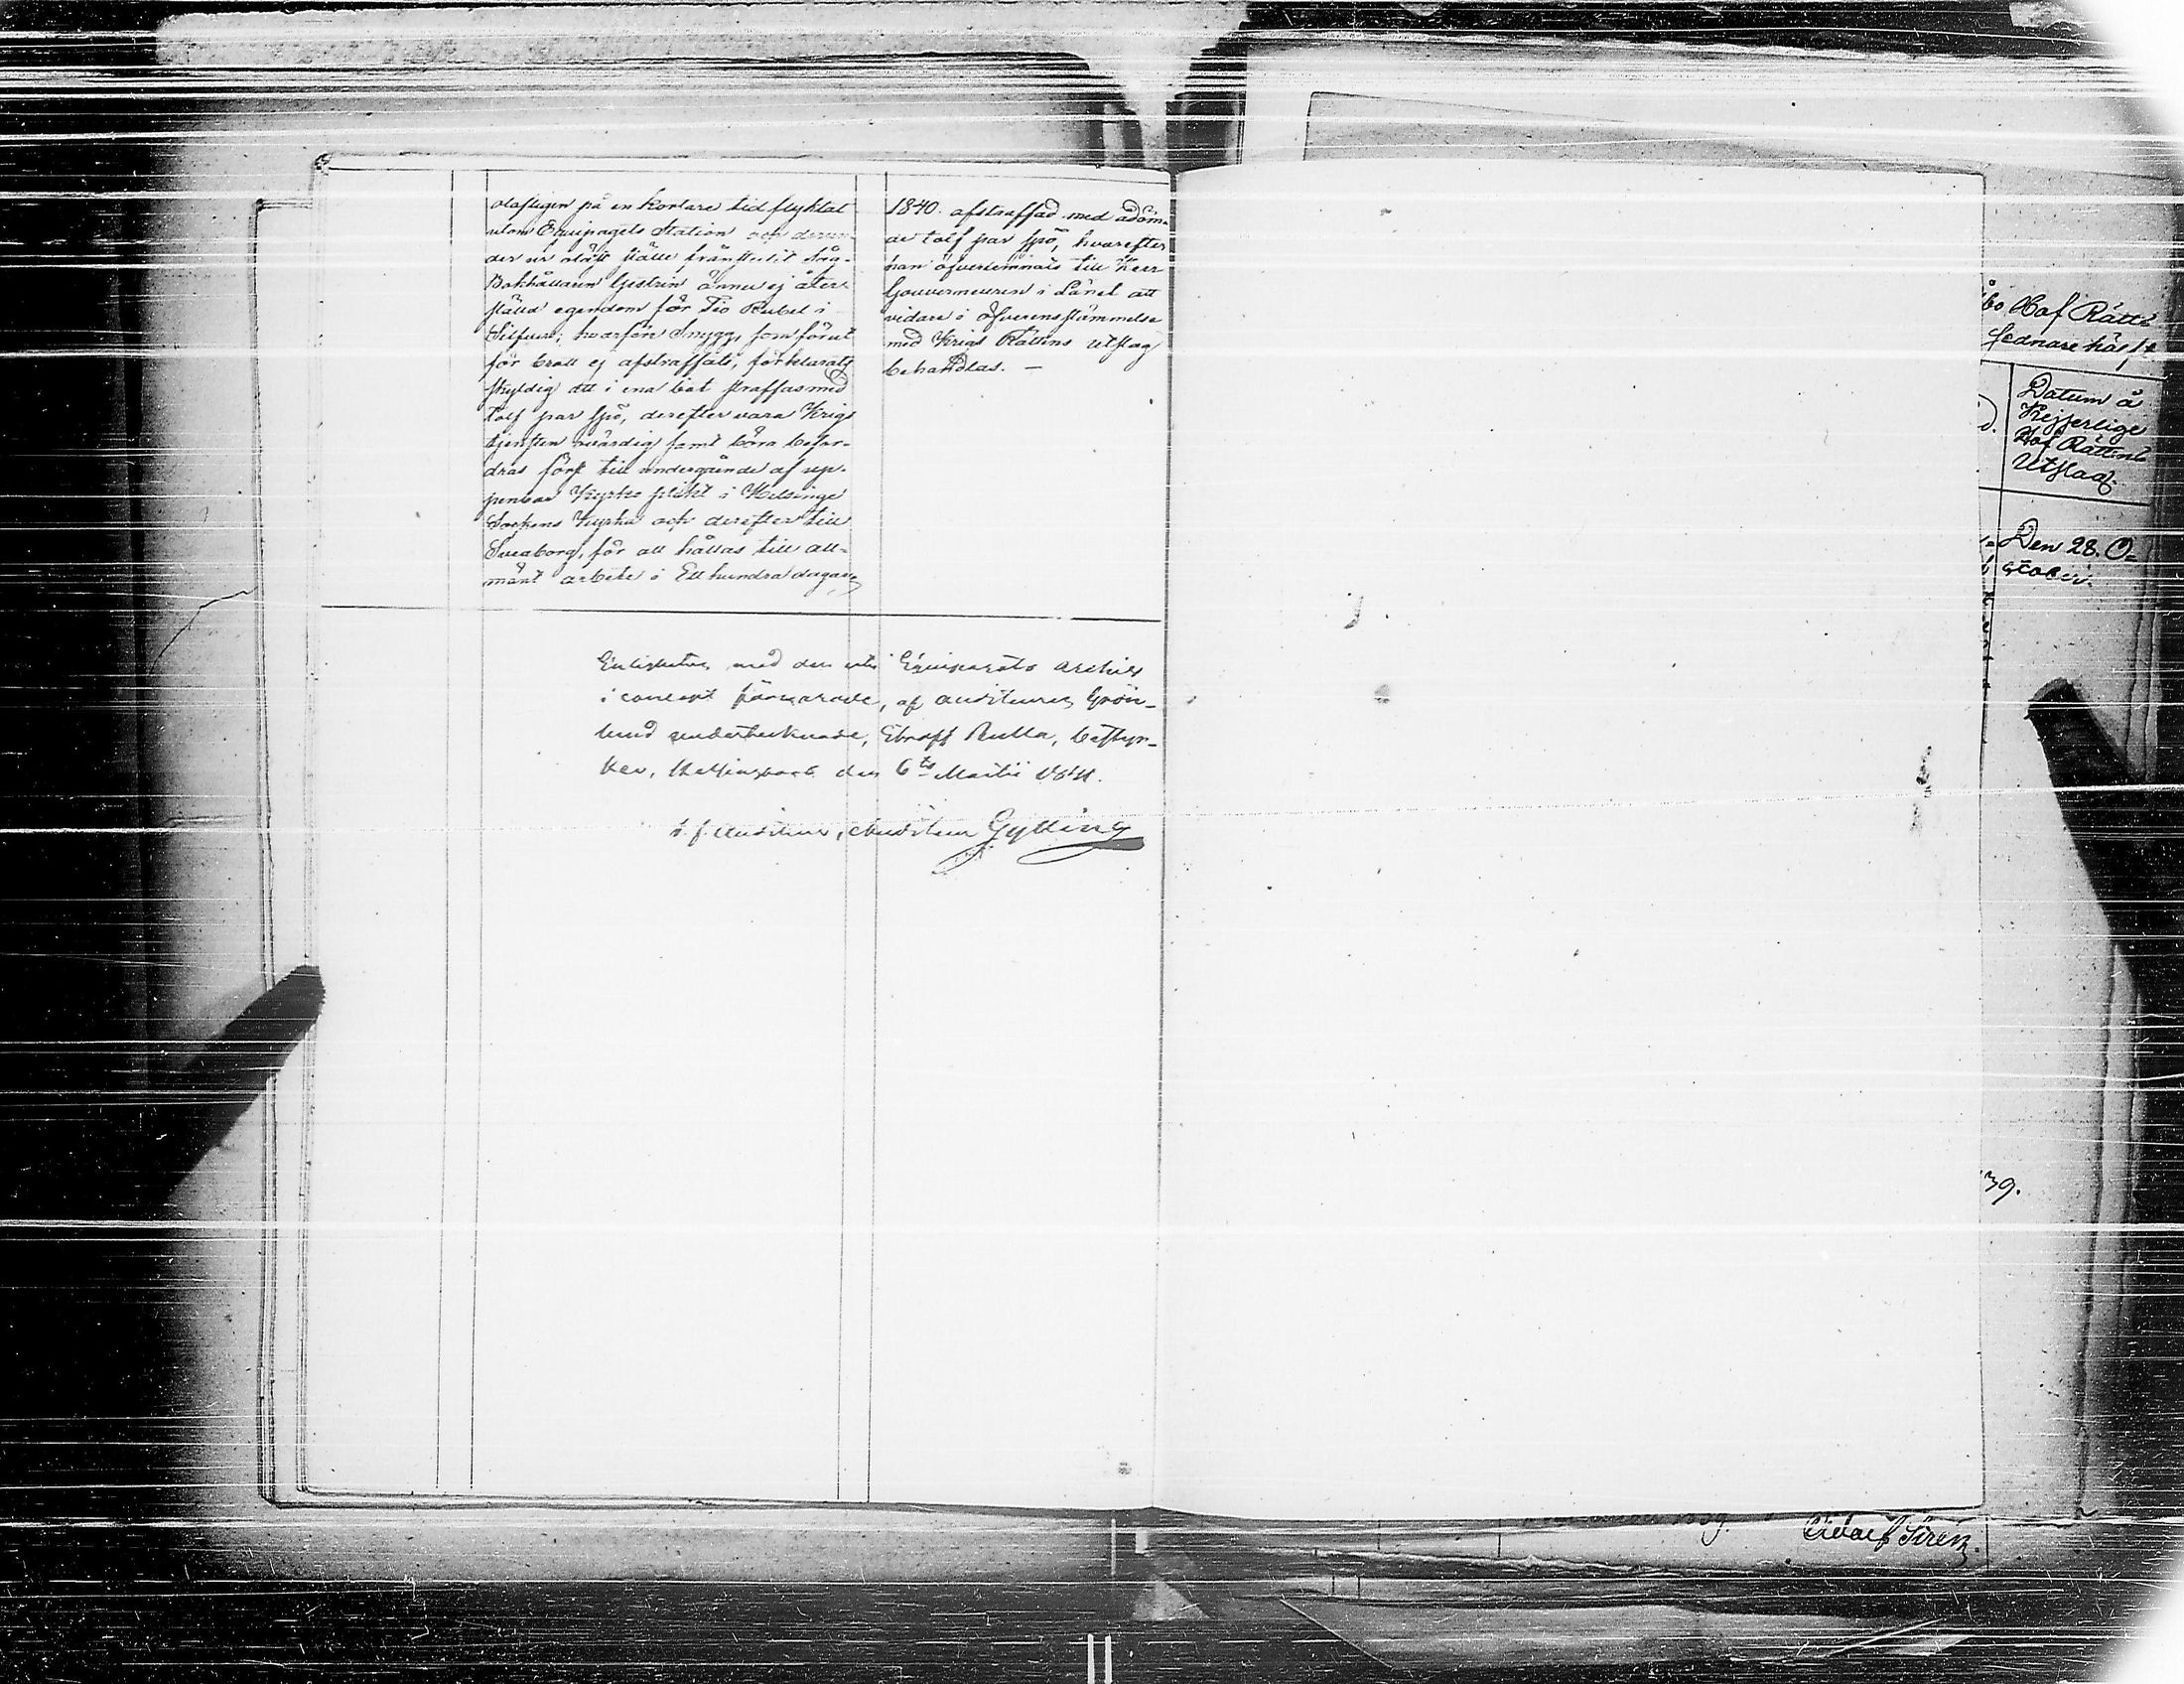 olofligen på en kortare tid flyktat
utom Equipagets Station och derun-
der ur olåst ställe frånstulit Såg-
Bokhållaren Gestrin ännu ej åter-
ställd egendom för Tio Rubel i
Silfver; hvarföre Snygg, som förut
för brott ej afstraffats, förklarats
skyldig att i ena bot straffas med
tolf par spö, derefter vara Krigs
tjensten ovärdig samt böra befor-
dras först till undergående af up-
penbar Kyrko plikt i Helsinge
Sockens Kyrka och derefter till
Sveaborg, för att hållas till all-
mänt arbete i Ett hundra dagar,
1840. afstraffad med ådöm-
de tolf par spö, hvarefter
han öfverlemnats till Herr
Gouverneuren i Länet att
vidare i öfverensstämmelse
med Krigs Rättens utslag
behandlas. —
Enligheten med den uti Equipagets archiv
i concept förvarade, af auditeuren Grön-
lund undertecknade, Straff Rulla, bestyr-
ker, Helsingfors den 6te Martii 1841.
t. f. Auditeur, Auditeur Gylling
Åbo Hof Rätts
sednare hälft
Datum å
Kejserlige
Hof Rättens
Utslag.
Den 28. O-
ctober.
39.
Adolf Sirén.